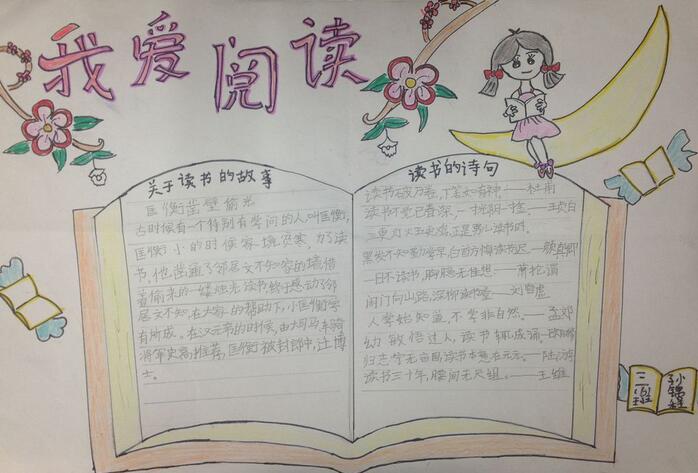 我爱阅读
关于读书的故事
匡衡凿壁偷光
古时候有一个特别有学问的人,叫匡衡,
匡衡小的时候家境贫寒,为了读
书,他凿通了邻居文不知家的墙借
着偷来的一缕烛光读书终于感动了邻
居文不知,在大家的帮助下,小匡衡学
有所成。在汉元帝的时候,由大司马车骑
将军史高推荐,匡衡被封郎中,迁博
士。
读书的诗句
读书破万卷,下笔如有神,——杜甫
读书不觉已春深,一
三更灯火五更鸡,正是男儿读书时,
黑发不知勤学早,白首方悔读书迟。——颜真卿
一日不读书,胸臆无佳想。——萧抡谓
闲门向山路,深柳读书堂——刘昚虚
人学始知道,不学非自然。——孟郊
幼敏悟过人,读书辄成诵。
归志宁无五亩园读书本意在元元。——陆游
读书三十年,腰间无尺组。——王维
三
班
孙